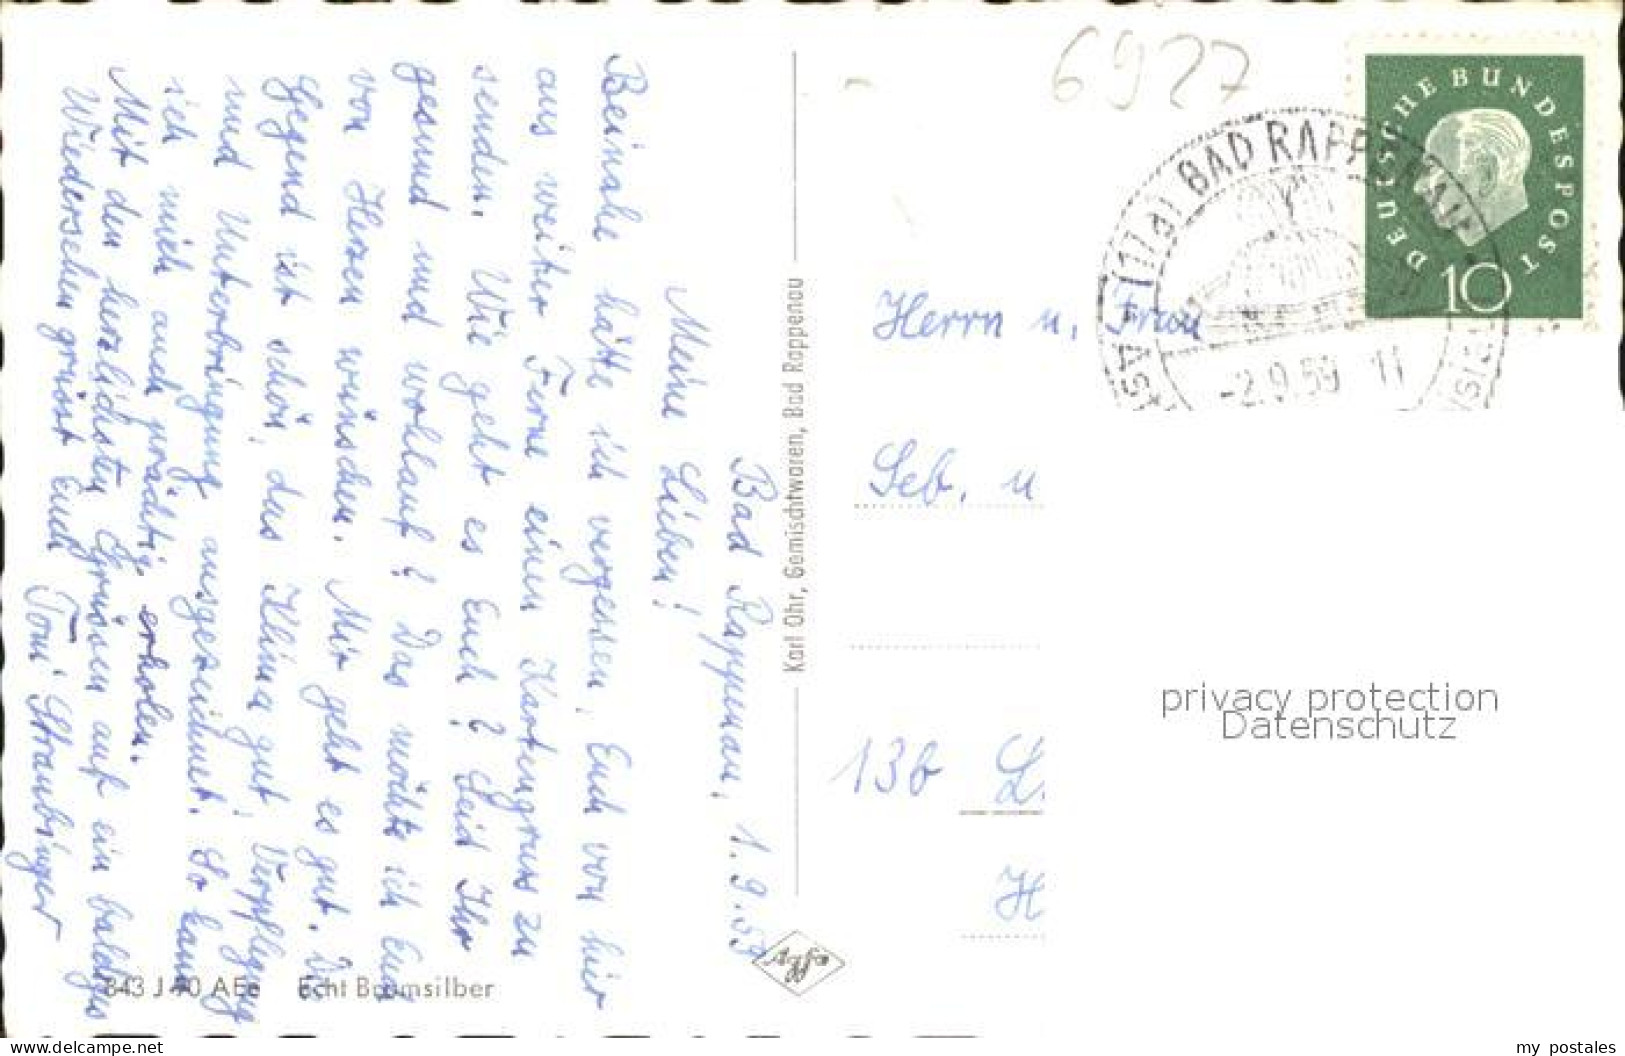 Bad Rappenau, 1.9.59
Meine Lieben!
Beinahe hätte ich vergessen, Euch von hier
aus weiter Ferne einen Kartengruss zu
senden. Wie geht es Euch? Seid Ihr
gesund und wohlauf? Das möchte ich Euch
von Herzen wünschen. Mir geht es gut. Die
Gegend ist schön, das Klima gut, Verpflegung
und Unterbringung ausgezeichnet. So kann
ich mich auch prächtig erholen.
Mit den herzlichsten Grüssen auf ein baldiges
Wiedersehen grüsst Euch Toni Straubinger
843 J 40 AEe Echt Bromsilber
Karl Ohr, Gemischtwaren, Bad Rappenau
Agfa
6927
DEUTSCHE BUNDESPOST
10
(17a) BAD RAPPENAU
-2.9.59 11
Herrn u. Frau
Seb. u
13b L.
H
privacy protection
Datenschutz
my postales
www.delcampe.net